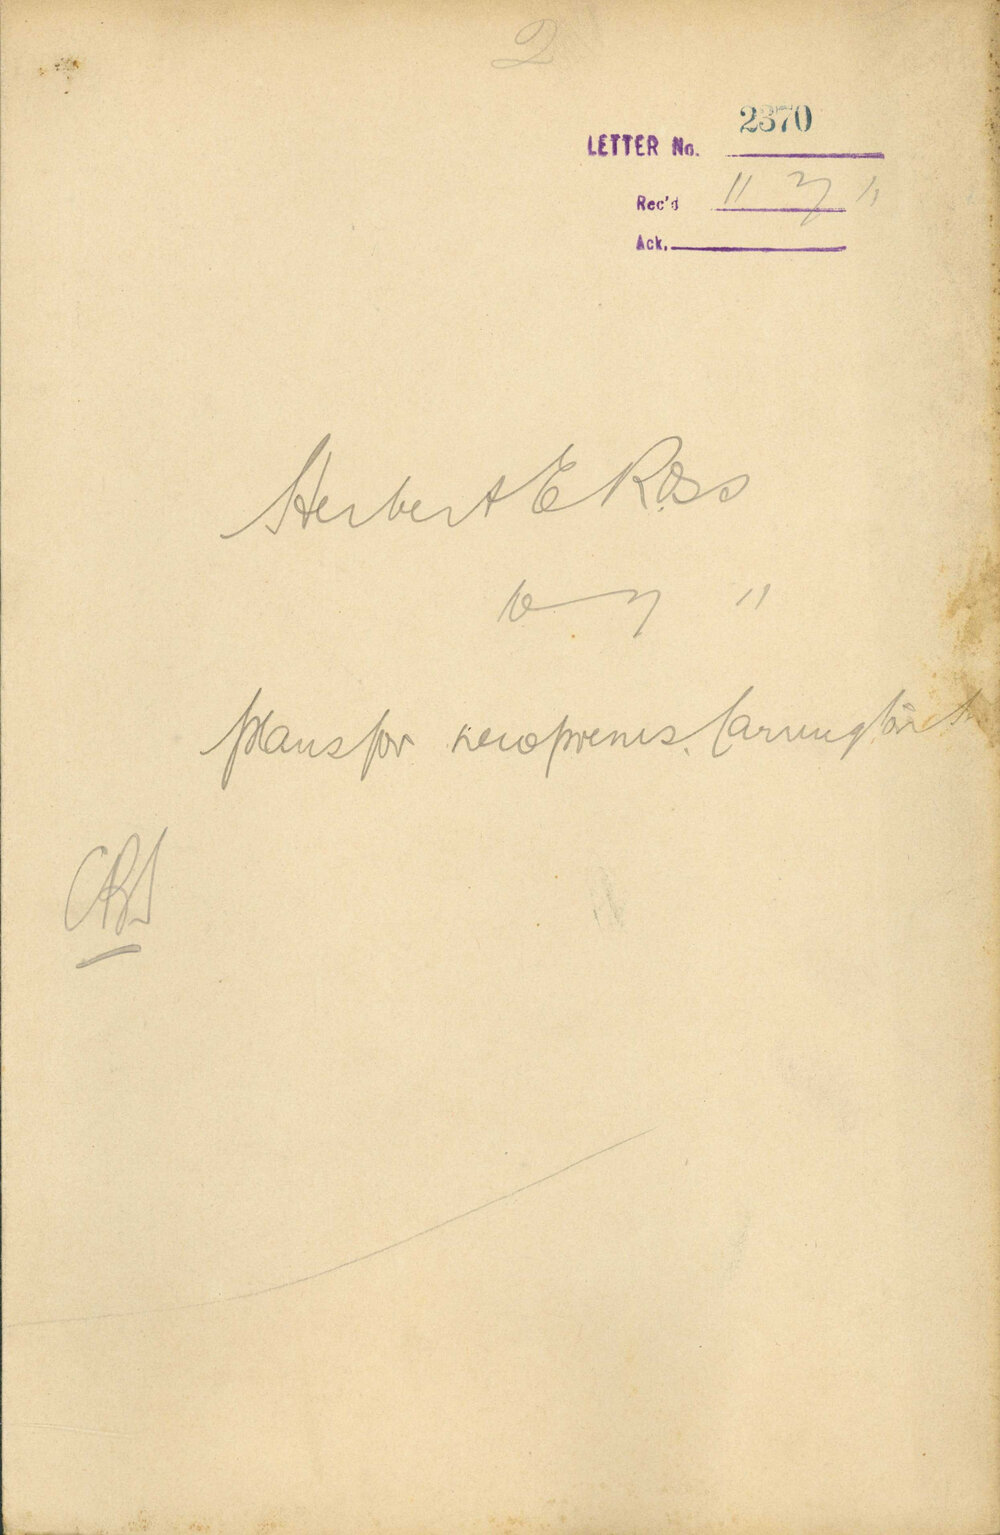 2
2370
LETTER No.
Rec'd 11 7 11
Ack.
Herbert E Ross
10 7 11
plans for new prems. Carrington St